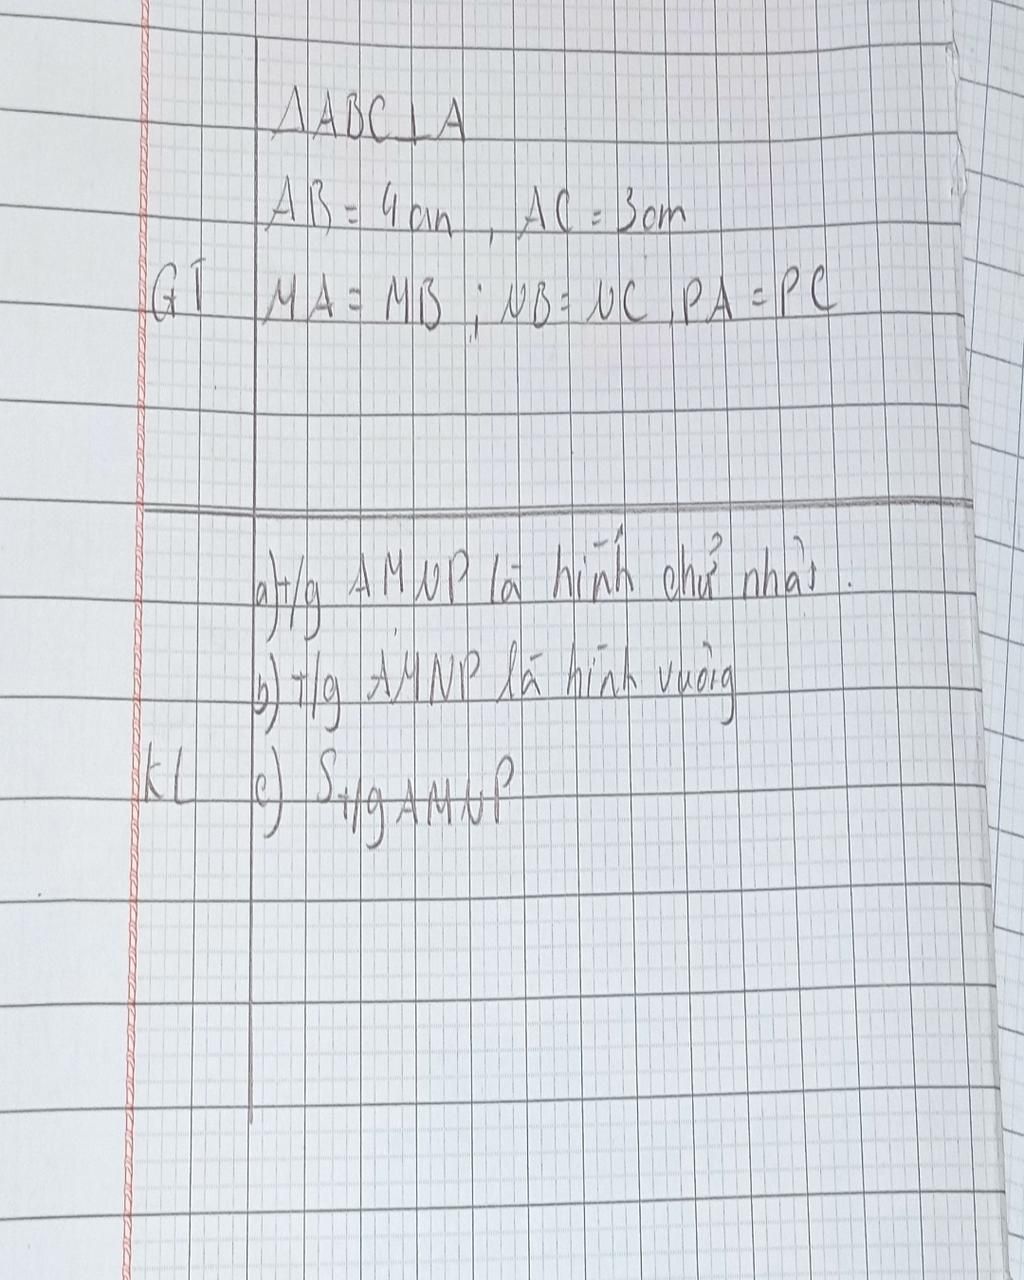 ΔABC⊥A
AB = 4cm, AC = 3cm
GT MA = MB ; NB = NC, PA = PC
a) t/g AMNP là hình chữ nhật.
b) t/g AMNP là hình vuông
KL c) S t/g AMNP